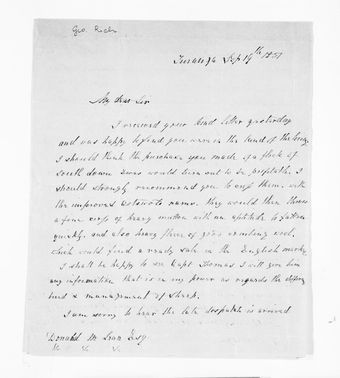 Geo. Rich
Sep 19th 1851
My dear Sir
I received your kind letter yesterday
and was happy to find you were in the land of the living
I should think the purchase you made of a flock of
South down Ewes would turn out to be profitable. I
should strongly recommend you to cross them with
the improved Cotswold rams. they would then throw
a fine crop of heavy mutton with an aptitude to fatten
quickly, and also heavy fleeces of good combing wool,
which would find a ready sale in the English market
I shall be happy to see Capt Thomas I will give him
any information that is in my power as regards the
breed & management of sheep.
I am sorry to hear the late dispute is arrived
Donald McLean Esq